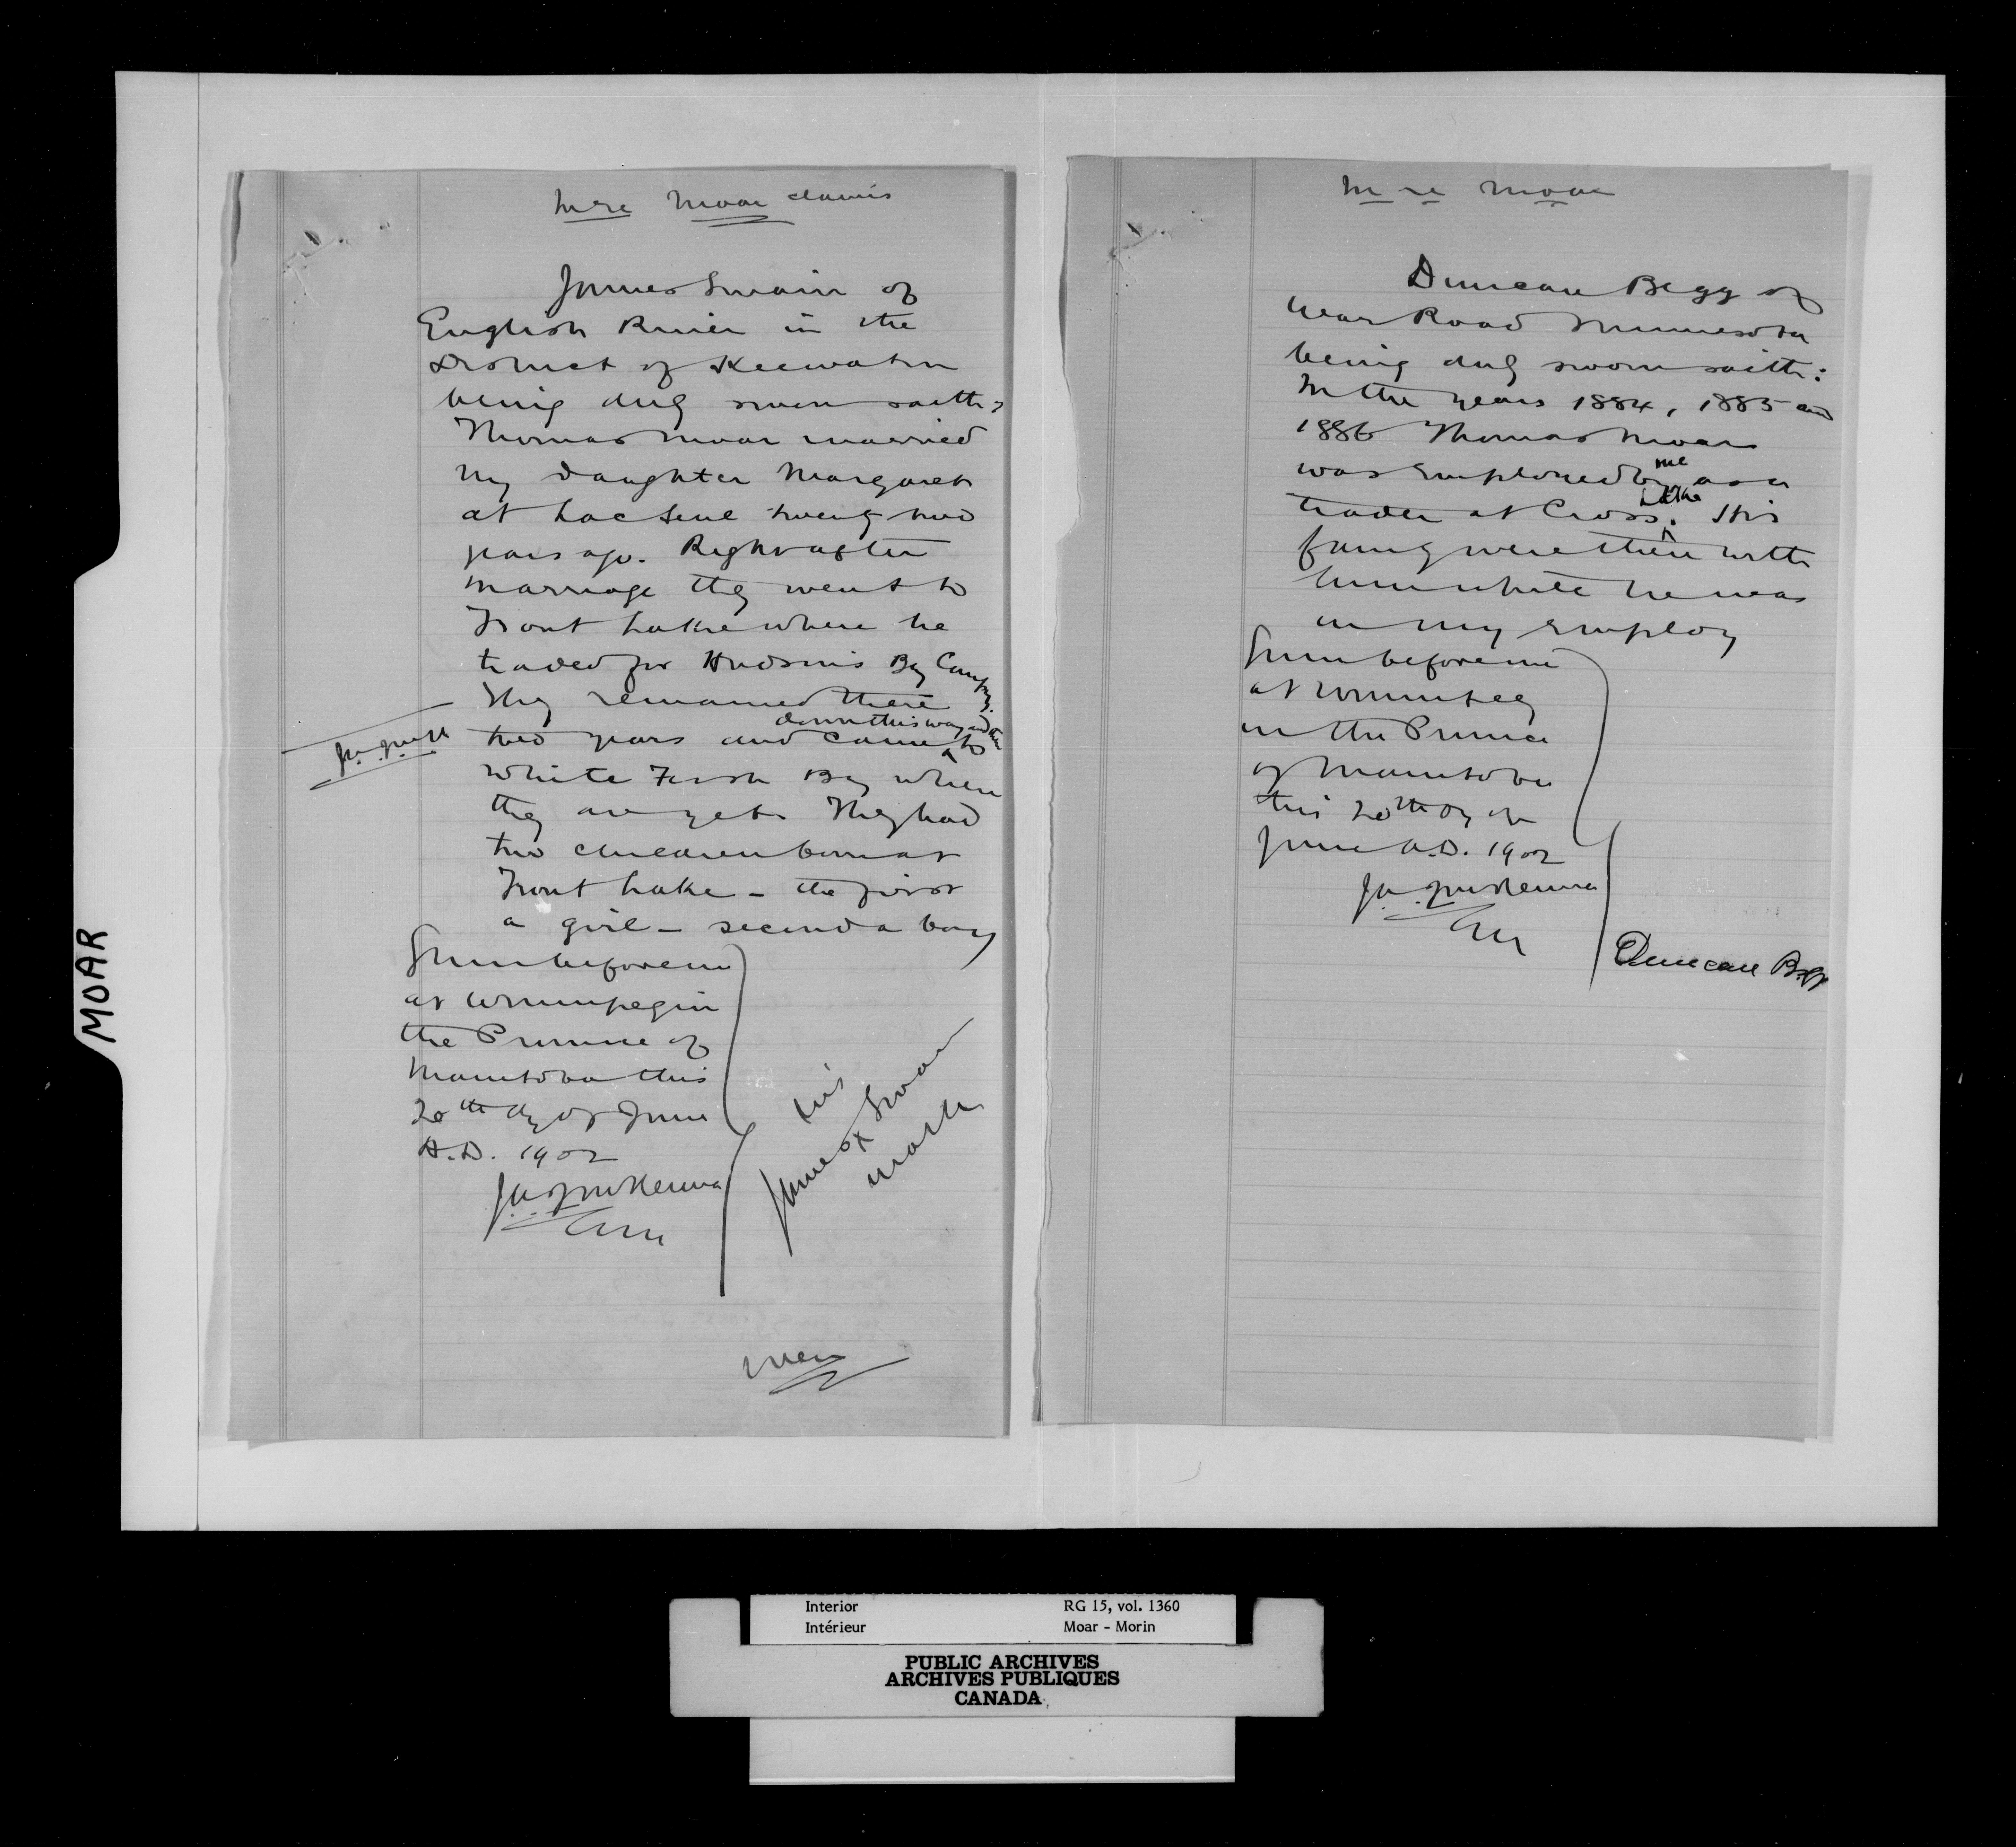 In re Moar claims
James Swain of
English River in the
District of Keewatin
being duly sworn saith:
Thomas Moar married
my daughter Margaret
at Lac Seul twenty two
years ago. Right after
marriage they went to
Trout Lake where he
traded for Hudson's Bay Company.
They remained there
down this way and then
J.A.J. McK
two years and came to
White Fish Bay where
they are yet. They had
two children born at
Trout Lake - the first
a girl - second a boy
Sworn before me
at Winnipeg in
the Province of
Manitoba this
20th day of June
A.D. 1902
J.A.J. McKenna
his
James X Swain
mark
over
In re Moar
Duncan Begg of
War Road Minnesota
being duly sworn saith:
In the years 1884, 1885 and
1886 Thomas Moar
was employed by me as a
trader at Cross Lake. His
family were then with
him while he was
in my employ
Sworn before me
at Winnipeg
in the Province
of Manitoba
this 20th day of
June A.D. 1902
J.A.J. McKenna
Duncan Begg
MOAR
Interior RG 15, vol. 1360
Intérieur Moar - Morin
PUBLIC ARCHIVES
ARCHIVES PUBLIQUES
CANADA